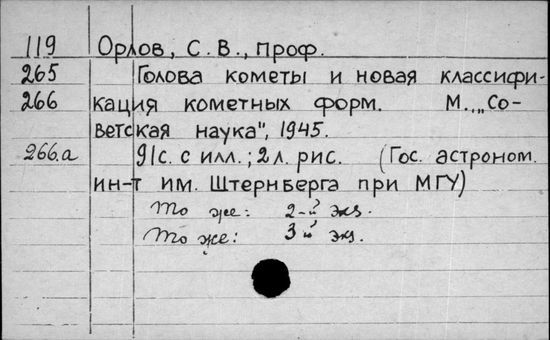 119 Орлов, С. В., проф.
265 Голова кометы и новая классифи-
266 кация кометных форм. М., „Со-
ветская наука", 1945.
266.а 91с. с илл.; 2 л. рис. (Гос. астроном.
ин-т им. Штернберга при МГУ)
То же: 2-й экз.
То же: 3й экз.